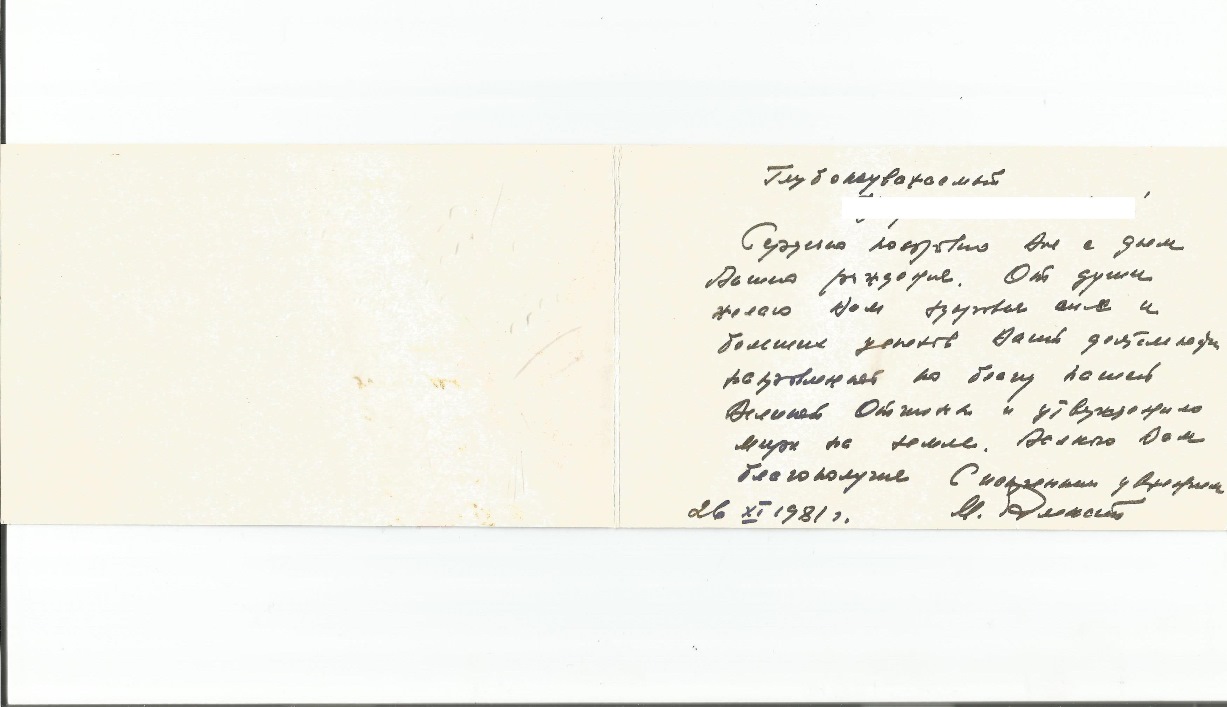 Глубокоуважаемый
!
Сердечно поздравляю Вас с днем
Вашего рождения. От души
желаю Вам здоровья сил и
больших успехов Вашей деятельности
направленной по благу нашей
Великой Отчизны и утверждению
мира на земле. Всякого Вам
благополучия С искренним уважением
26 XI 1981 г. И.